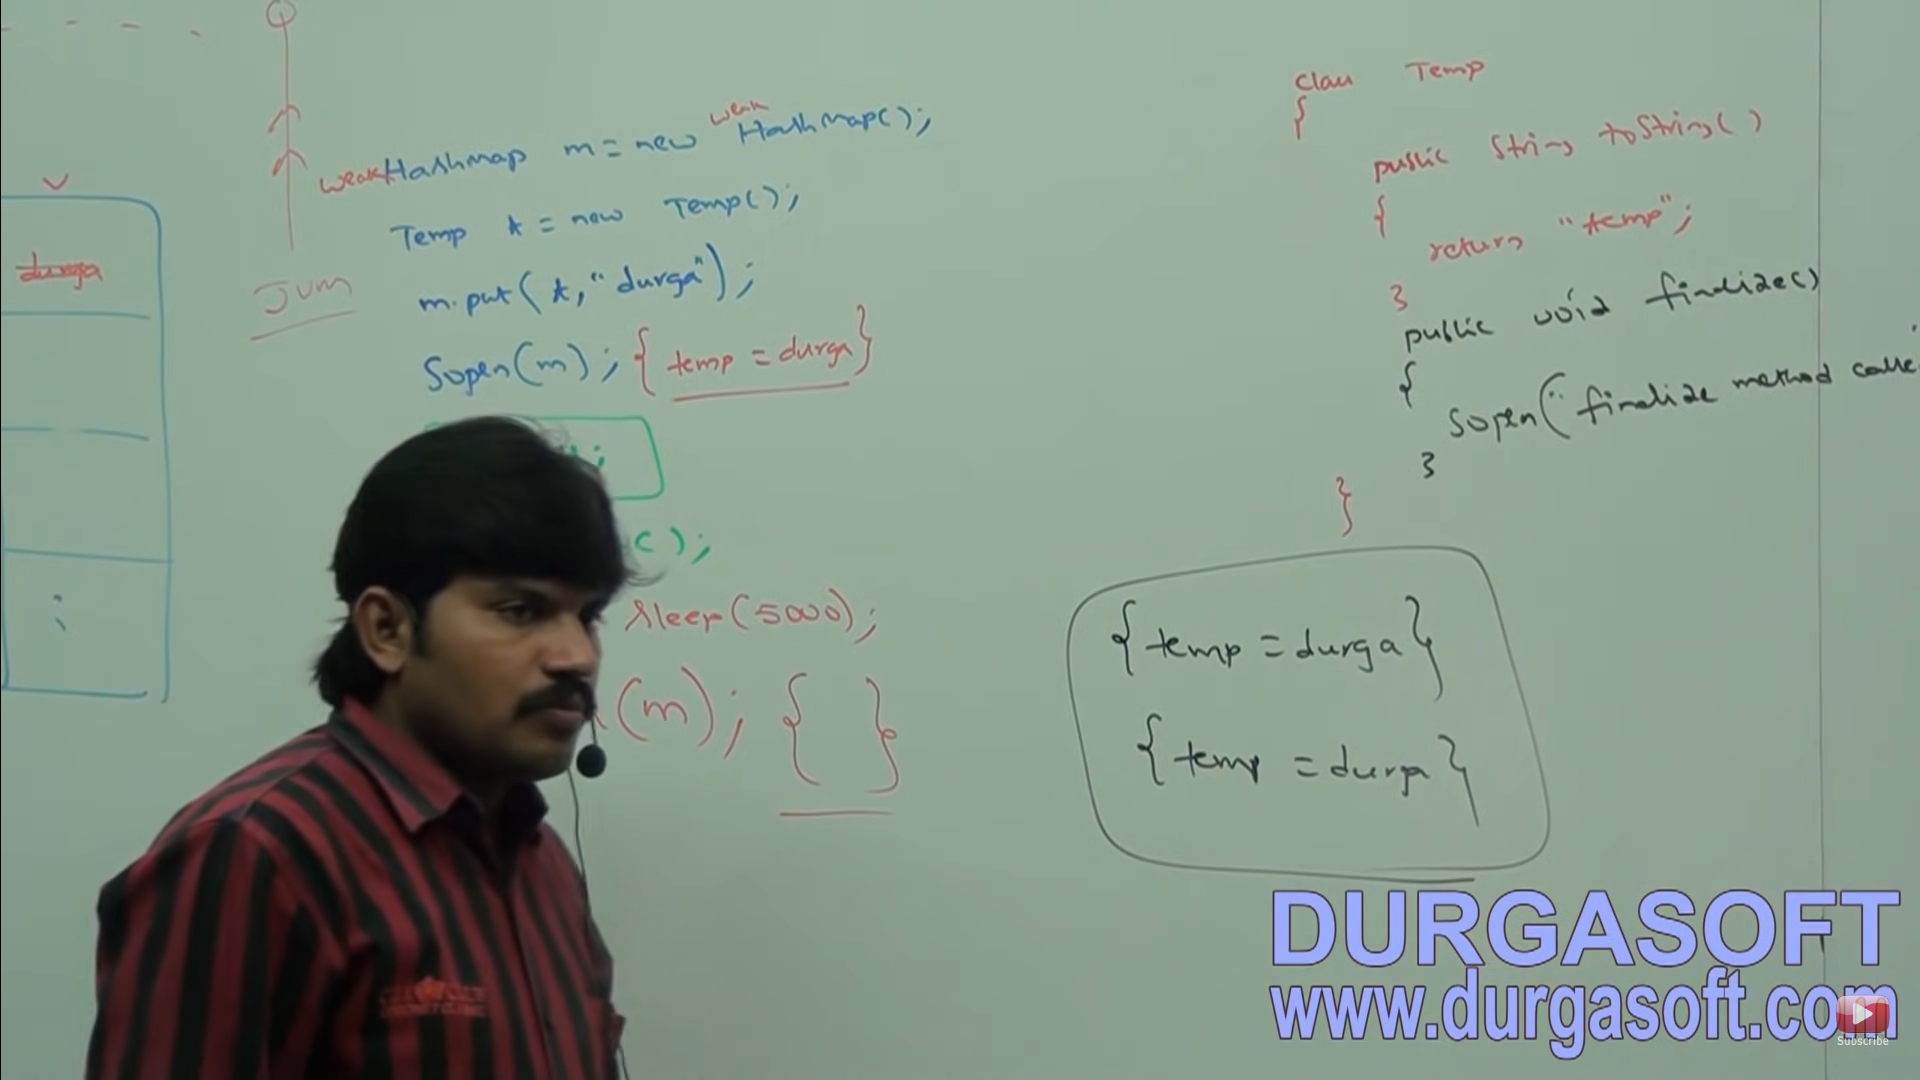 v
durga
:
JVM
weak
weakHashmap m = new HashMap();
Temp t = new Temp();
m.put(t, "durga");
Sopen(m); { temp = durga}
);
sleep(5000);
(m); { }
Class Temp
{
public String toString()
{
return "temp";
}
public void finalize()
{
Sopen("finalize method calle
}
}
{temp = durga}
{temp = durga}
DURGASOFT
www.durgasoft.com
Subscribe